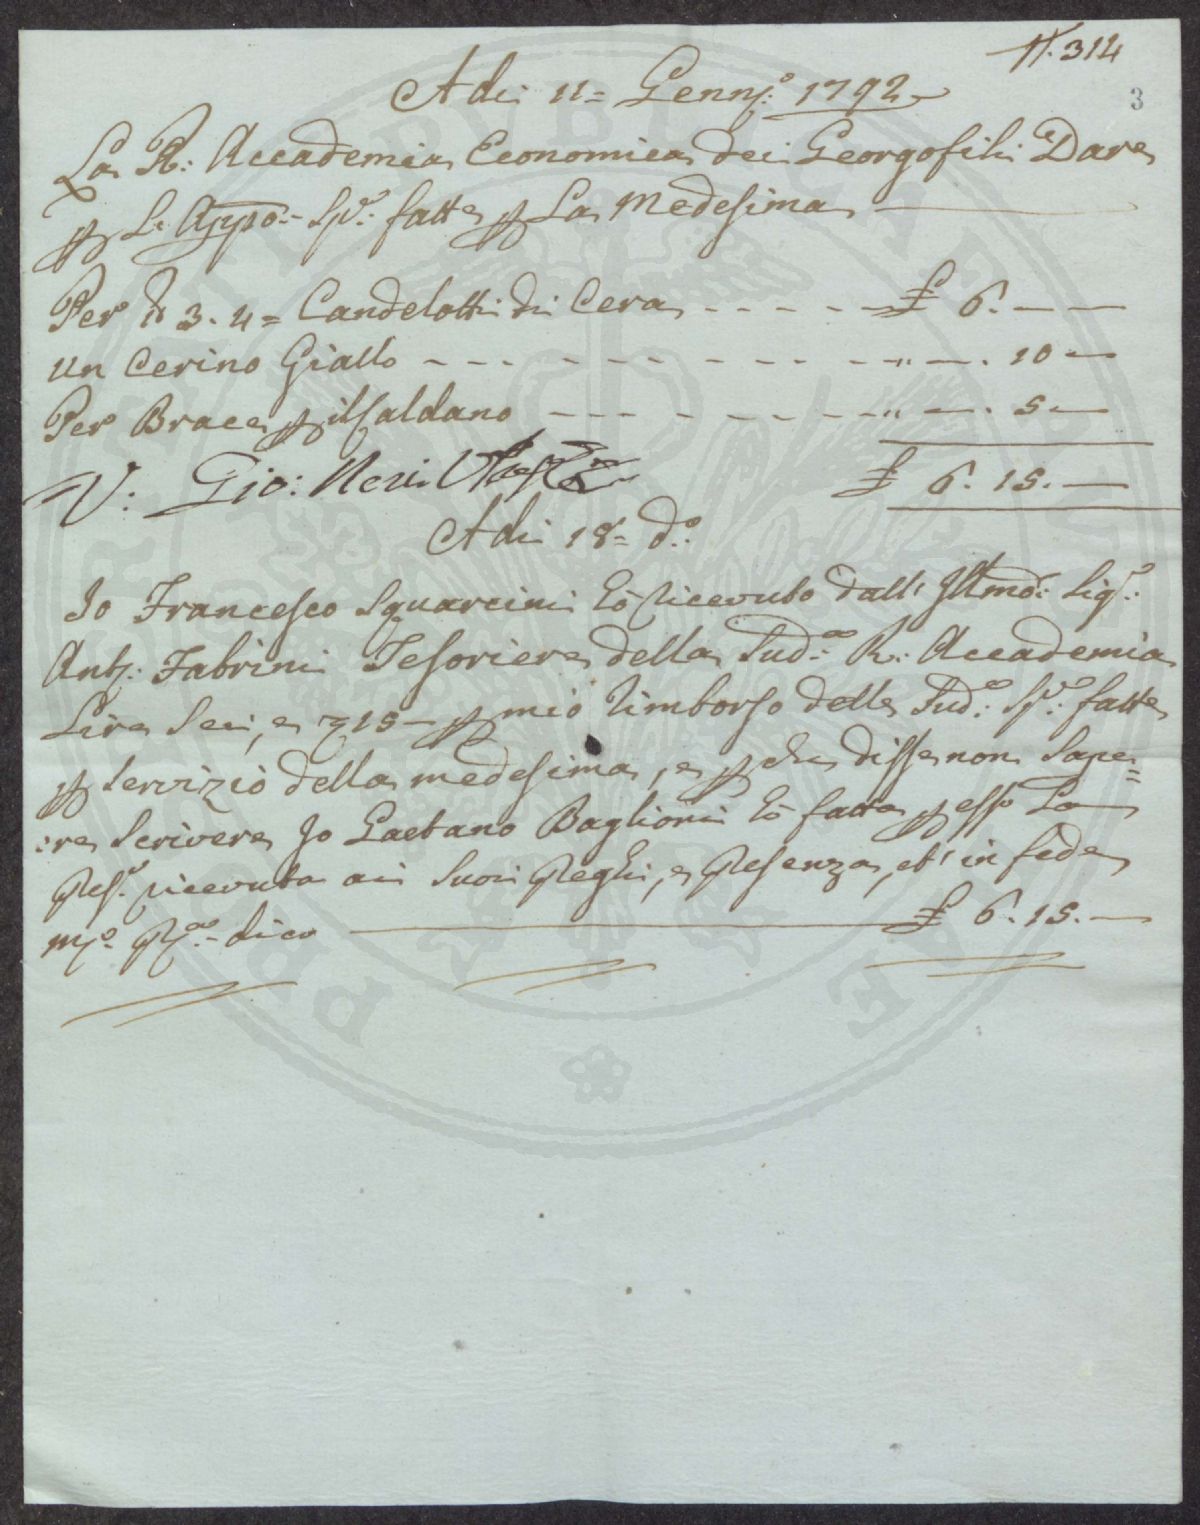 N. 314
3
Adi 11= Genn.o 1792
La R: Accademia Economica dei Georgofili Dare
p Le Appo:- Sp.e: fatte p La Medesima
Per lb 3.4= Candelotti di Cera - - - - - £ 6. — —
Un Cerino Giallo - - - - - - - - - - " — . 10 —
Per Brace p il Caldano - - - - - - - " — . 5 —
V: Gio: Neri
£ 6. 15. —
Adi 18= d.o:
Io Francesco Squarcini hò ricevuto dall' Illmo: Sig.e:
Ant.o: Fabrini Tesoriere della Sud.a: R: Accademia
Lire Sei, e 15 — p mio rimborso delle Sud.e: Sp.e: fatte
p servizio della medesima, e p che disse non Sape=
:re Scrivere Io Gaetano Baglioni hò fatta p esso La
Pres.e ricevuta ai Suoi Preghi, e Presenza, et in fede
M.o: P.a:- dico ——— £ 6. 15. —